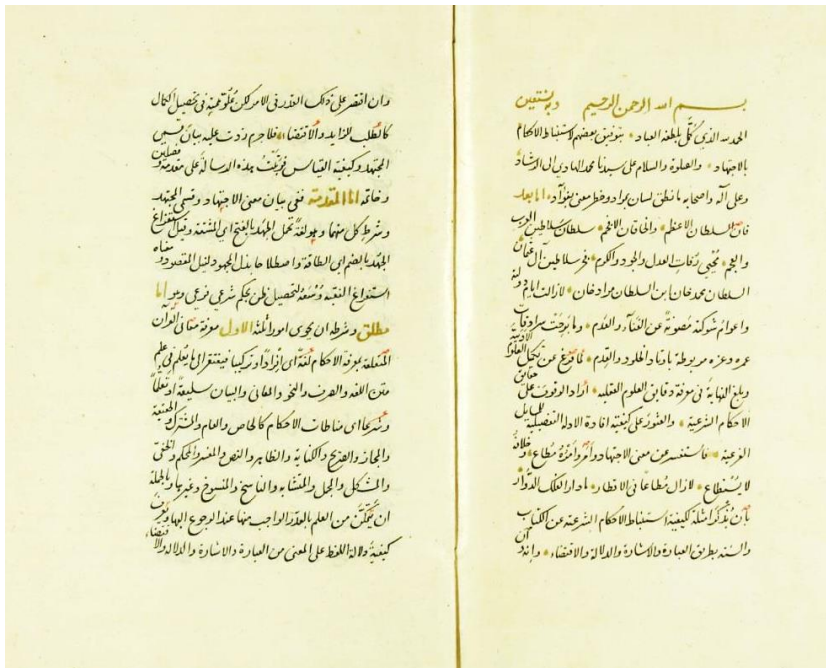 بسم الله الرحمن الرحيم وبه نستعين
الحمد لله الذي كلّ بلطفه العباد بتوفيق بعضهم لاستنباط الاحكام
بالاجتهاد والصلوة والسلام على سيدنا محمد الهادي الى الرشاد
وعلى آله واصحابه ما نطق لسان بمراد وخطر معنى بفؤاد اما بعد
فان السلطان الاعظم والخاقان الافخم سلطان سلاطين العرب
والعجم محيي رفات العدل والجود والكرم فخر سلاطين آل عثمان
السلطان محمد خان ابن السلطان مراد خان لا زالت ايام دولته
واعوام شوكته مصونة عن الفناء والعدم وما برحت سرادقات
عمره وعزه مربوطة باوتاد الخلود والقدم لما فرغ عن تكميل العلوم الادبية
وبلغ النهاية في معرفة دقايق العلوم العقلية اراد الوقوف على حقايق
الاحكام الشرعية والعثور على كيفية افادة الادلة التفصيلية للمسايل
الفرعية فاستفسر عن معنى الاجتهاد وامر وامره مطاع وخلافه
لا يستطاع لا زال مطاعا في الاقطار ما دار الفلك الدوار
بان نذكر امثلة لكيفية استنباط الاحكام الشرعية عن الكتاب
والسنة بطريق العبارة والاشارة والدلالة والاقتضاء وانه
وان اقتصر على ذلك القدر في الامر لكن علو همته في تحصيل الكمال
كالطلب للزايد والاقتضاء فلا جرم زدت عليه بيان قسمي
المجتهد وكيفية القياس فرتبت هذه الرسالة على مقدمة وفصلين
وخاتمة اما المقدمة ففي بيان معنى الاجتهاد وقسمي المجتهد
وشرط كل منهما وهو لغة تحمل الجهد بالفتح اي المشقة وقيل استفراغ
الجهد بالضم اي الطاقة واصطلاحا بذل المجهود لنيل المقصود ومعناه
استفراغ الفقيه وسعه لتحصيل ظن بحكم شرعي فرعي وهو اما
مطلق وشرطه ان يحوي امورا ثلثة الاول معرفة معاني القرآن
المتعلقة بمعرفة الاحكام لغة اي افرادا وتركيبا فيفتقر الى ما يعلم في علم
متن اللغة والصرف والنحو والمعاني والبيان سليقة او تعلما
وشرعا اي مناطات الاحكام كالخاص والعام والمشترك والحقيقة
والمجاز والصريح والكناية والظاهر والنص والمفسر والمحكم والخفي
والمشكل والمجمل والمتشابه والناسخ والمنسوخ وغيرها وبالجملة
ان يتمكن من العلم بالقدر الواجب منها عند الرجوع اليها ويعرف
كيفية دلالة اللفظ على المعنى من العبارة والاشارة والدلالة والاقتضاء